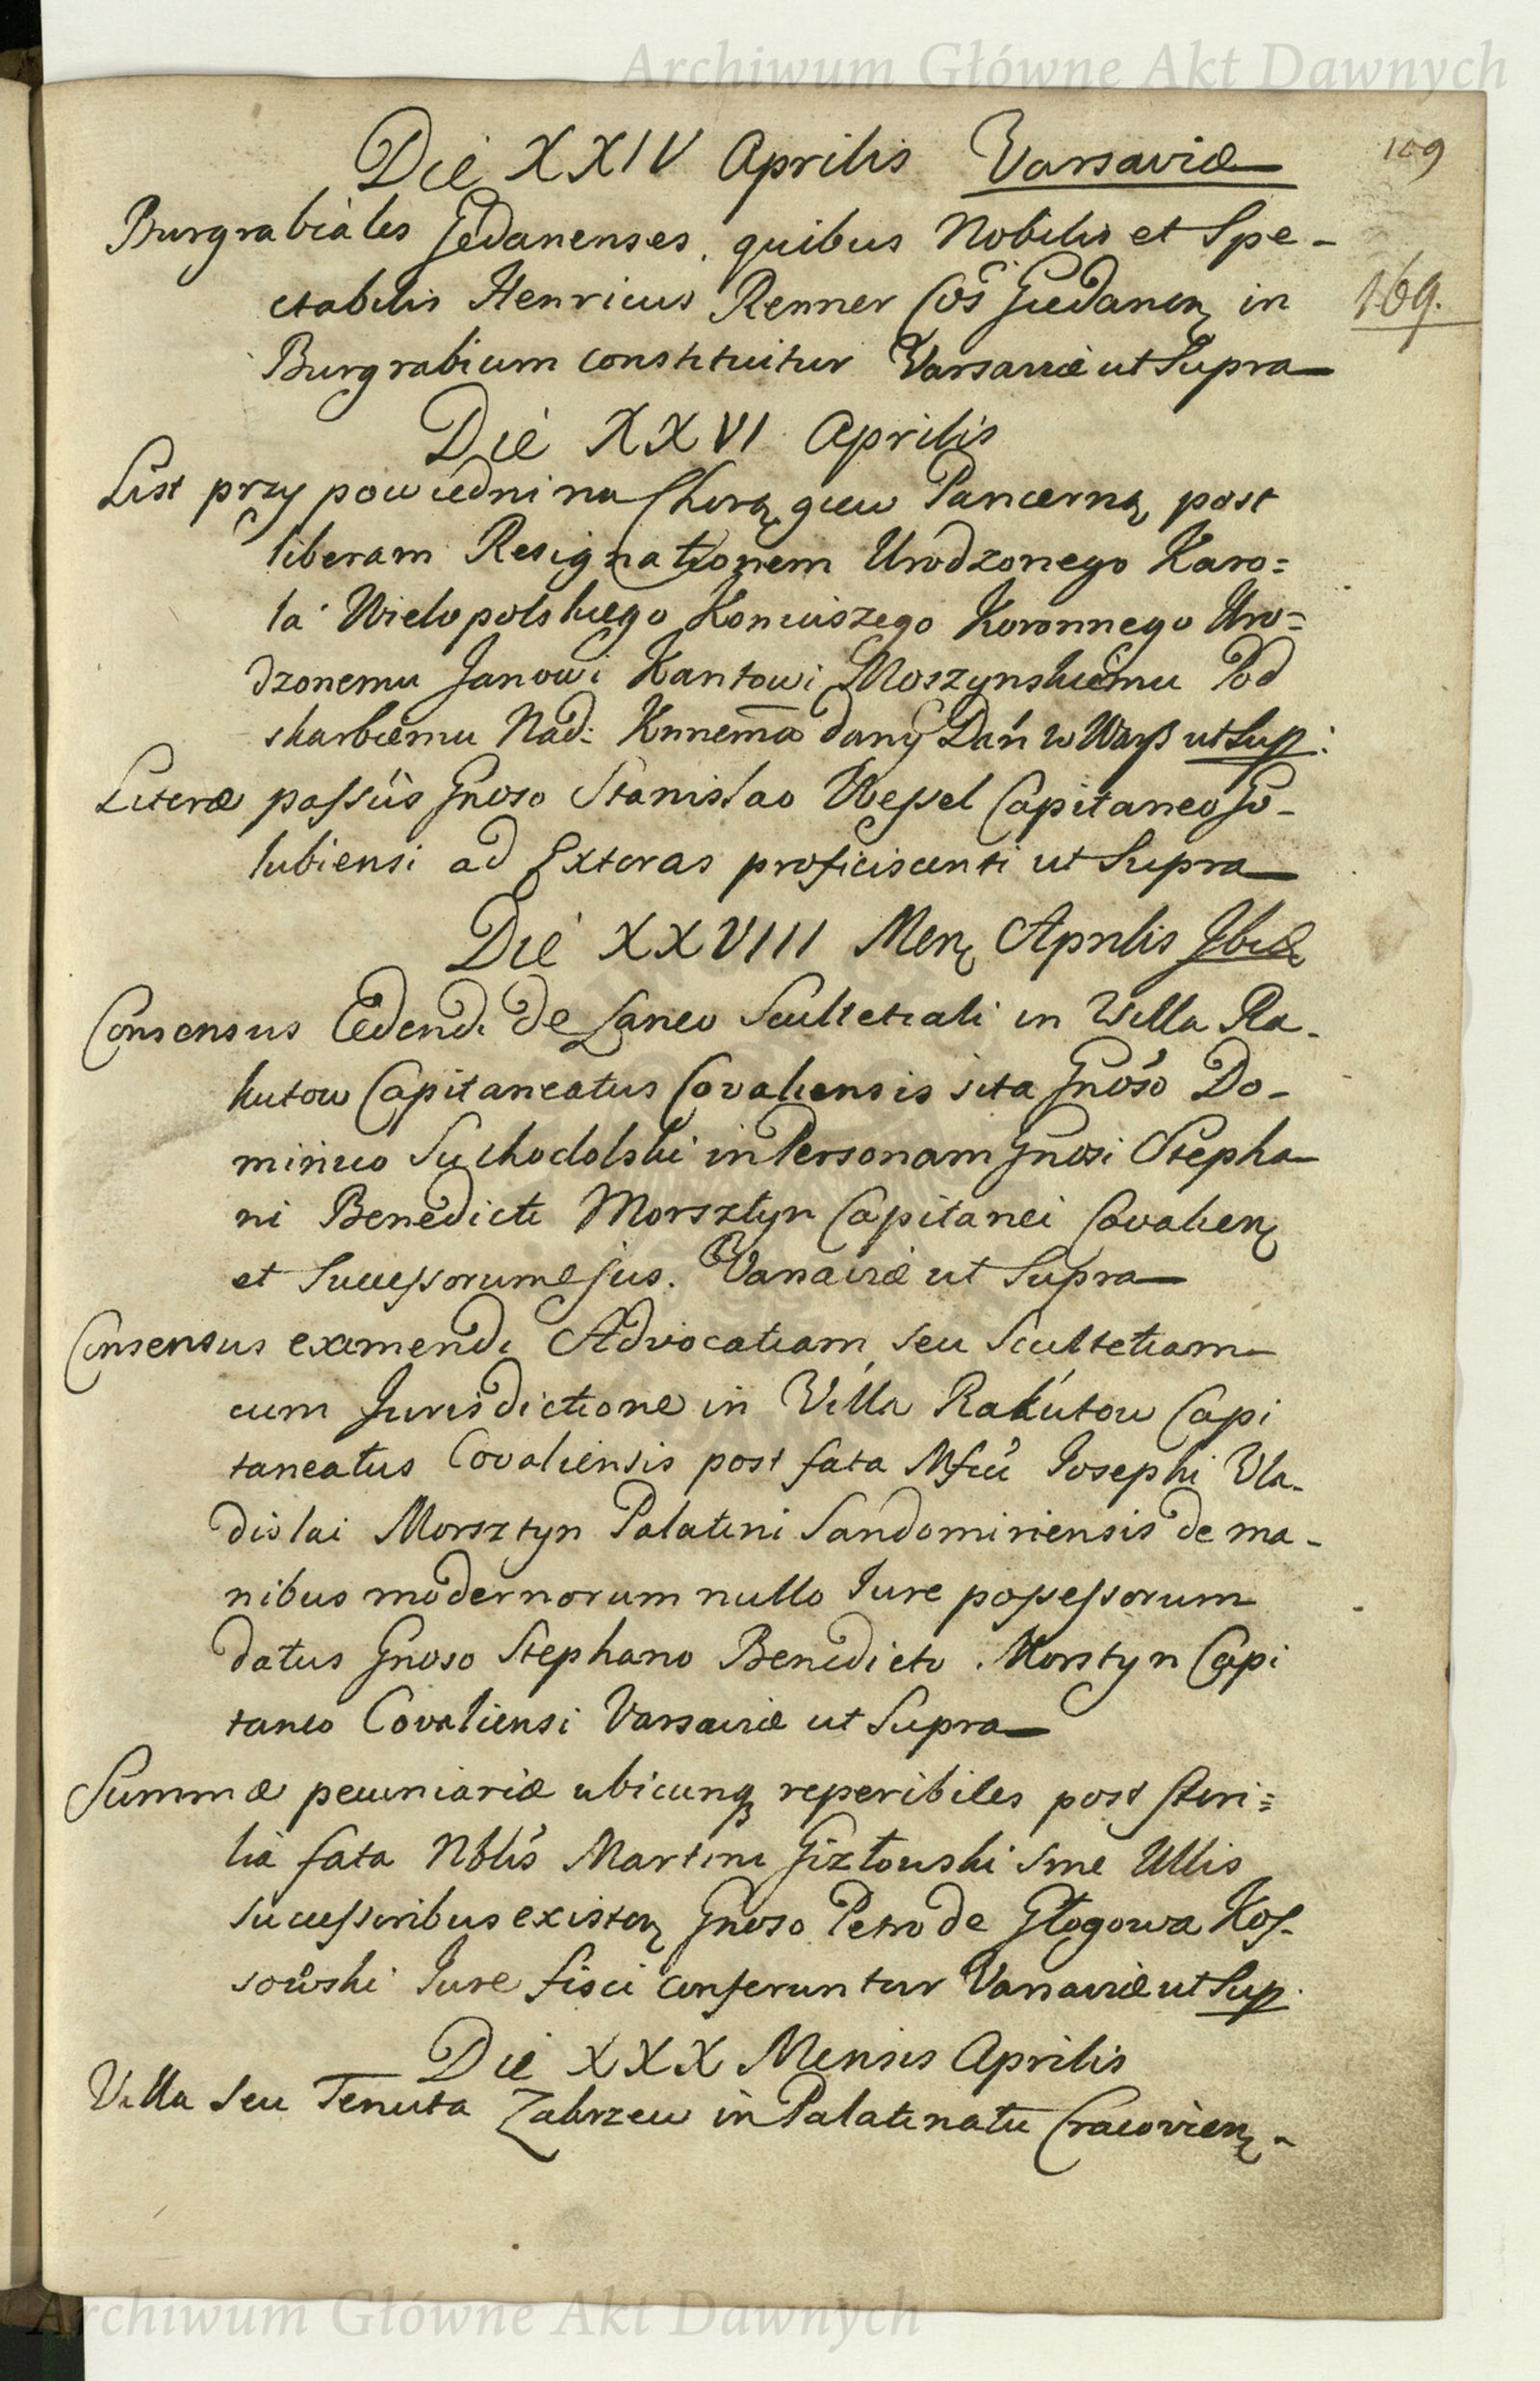 Archiwum Główne Akt Dawnych
109
Die XXIV Aprilis Varsaviæ
Burgrabiales Gedanenses, quibus Nobilis et Spe-
ctabilis Henricus Renner Cos Gedanen in
169.
Burgrabium constituitur Varsaviæ ut Supra
Die XXVI Aprilis
List przypowiedni na Chorągiew Pancerną post
liberam Resignationem Urodzonego Karo=
la Wielopolskiego Koniuszego Koronnego Uro=
dzonemu Janowi Kantowi Moszynskiemu Pod
skarbiemu Nad: Knnema dany Dań w Warß ut Sup:
Literæ passûs Gnoso Stanislao Wessel Capitaneo Go-
lubiensi ad Exteras proficiscenti ut Supra
Die XXVIII Men Aprilis Ibid
Consensus Cedendi de Laneo Scultetiali in Villa Ra-
kutow Capitaneatus Covaliensis sita Gnoso Do-
minico Suchodolski in Personam Gnosi Stepha-
ni Benedicti Morsztyn Capitanei Covalien
et Successorum ejus. Varsaviæ ut Supra
Consensus eximendi Advocatiam seu Scultetiam
cum Jurisdictione in Villa Rakutow Capi
taneatus Covaliensis post fata Mfci Josephi Vla-
dislai Morsztyn Palatini Sandomiriensis de ma-
nibus modernorum nullo Jure possessorum
datus Gnoso Stephano Benedicto Morstyn Capi
taneo Covaliensi Varsaviæ ut Supra
Summæ pecuniariæ ubicunq reperibiles post steri=
lia fata Nblis Martini Gizłowski sine Ullis
successoribus existen Gnoso Petro de Głogowa Kos-
sowski Jure fisci conferuntur Varsaviæ ut Sup.
Die XXX Mensis Aprilis
Villa seu Tenuta Zabrzew in Palatinatu Cracovien-
Archiwum Główne Akt Dawnych